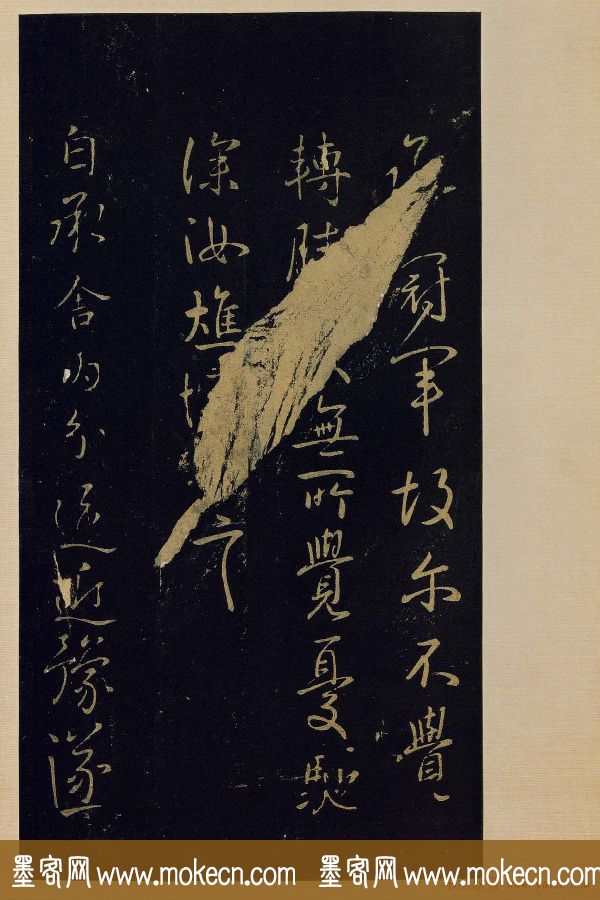 冠軍故尔不覺
轉無所覺憂馳
深汝燋
自承舍內分違近豫遂
墨客网 www.mokecn.com 墨客网 www.mokecn.com